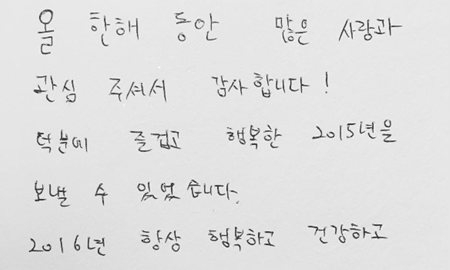 올 한해 동안 많은 사랑과
관심 주셔서 감사합니다!
덕분에 즐겁고 행복한 2015년을
보낼 수 있었습니다.
2016년 항상 행복하고 건강하고